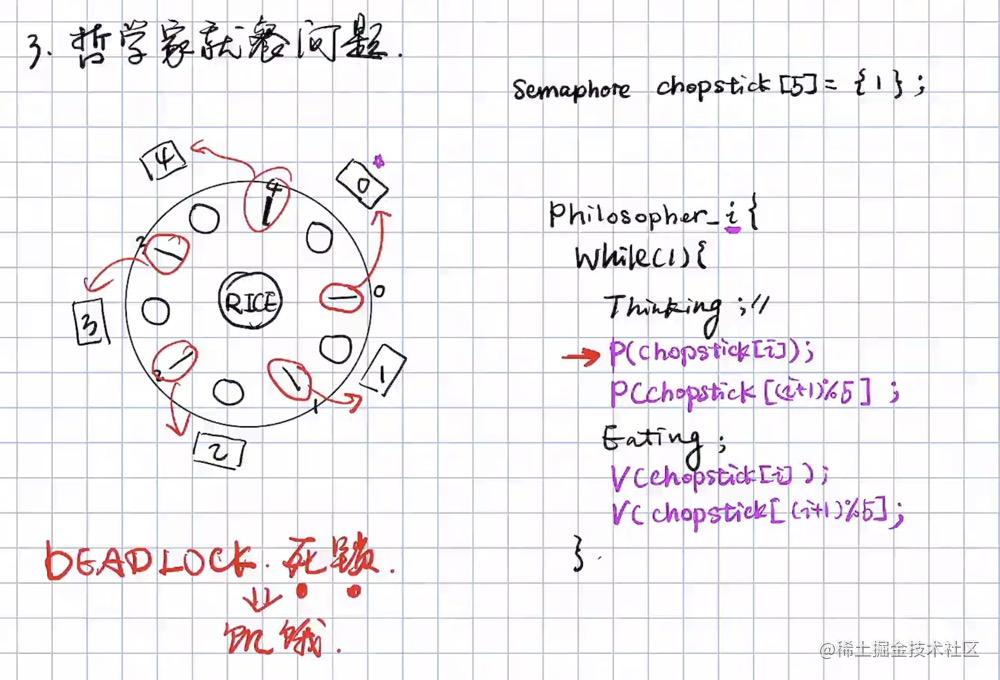 3. 哲学家就餐问题.
Semaphore chopstick[5] = {1};
4
0
4
3
0
RICE
3
1
2
1
2
Philosopher_i {
While(1){
Thinking ; //
P(chopstick[i]);
P(chopstick[(i+1)%5] ;
Eating ;
V(chopstick[i]);
V(chopstick[(i+1)%5];
} .
DEADLOCK. 死锁.
饥饿.
@稀土掘金技术社区